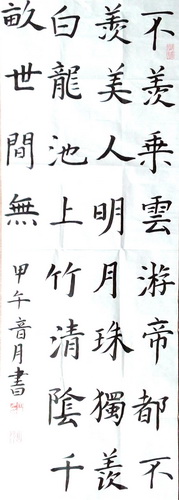 不羨乘雲游帝都不
羨美人明月珠獨羨
白龍池上竹清陰千
畝世間無
甲午音月書